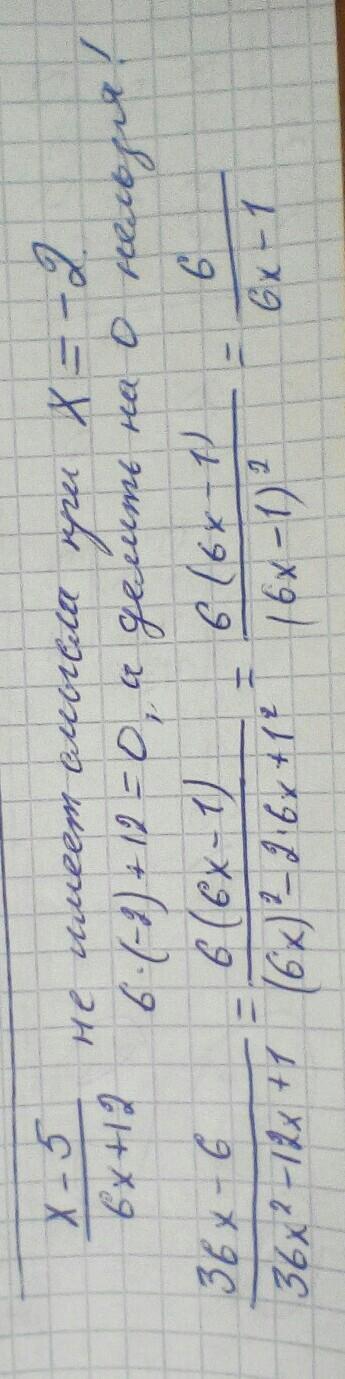 x-5/6x+12 не имеет смысла при x = -2
6·(-2)+12=0, а делить на 0 нельзя!
36x-6/36x²-12x+1 = 6(6x-1)/(6x)²-2·6x+1² = 6(6x-1)/(6x-1)² = 6/6x-1